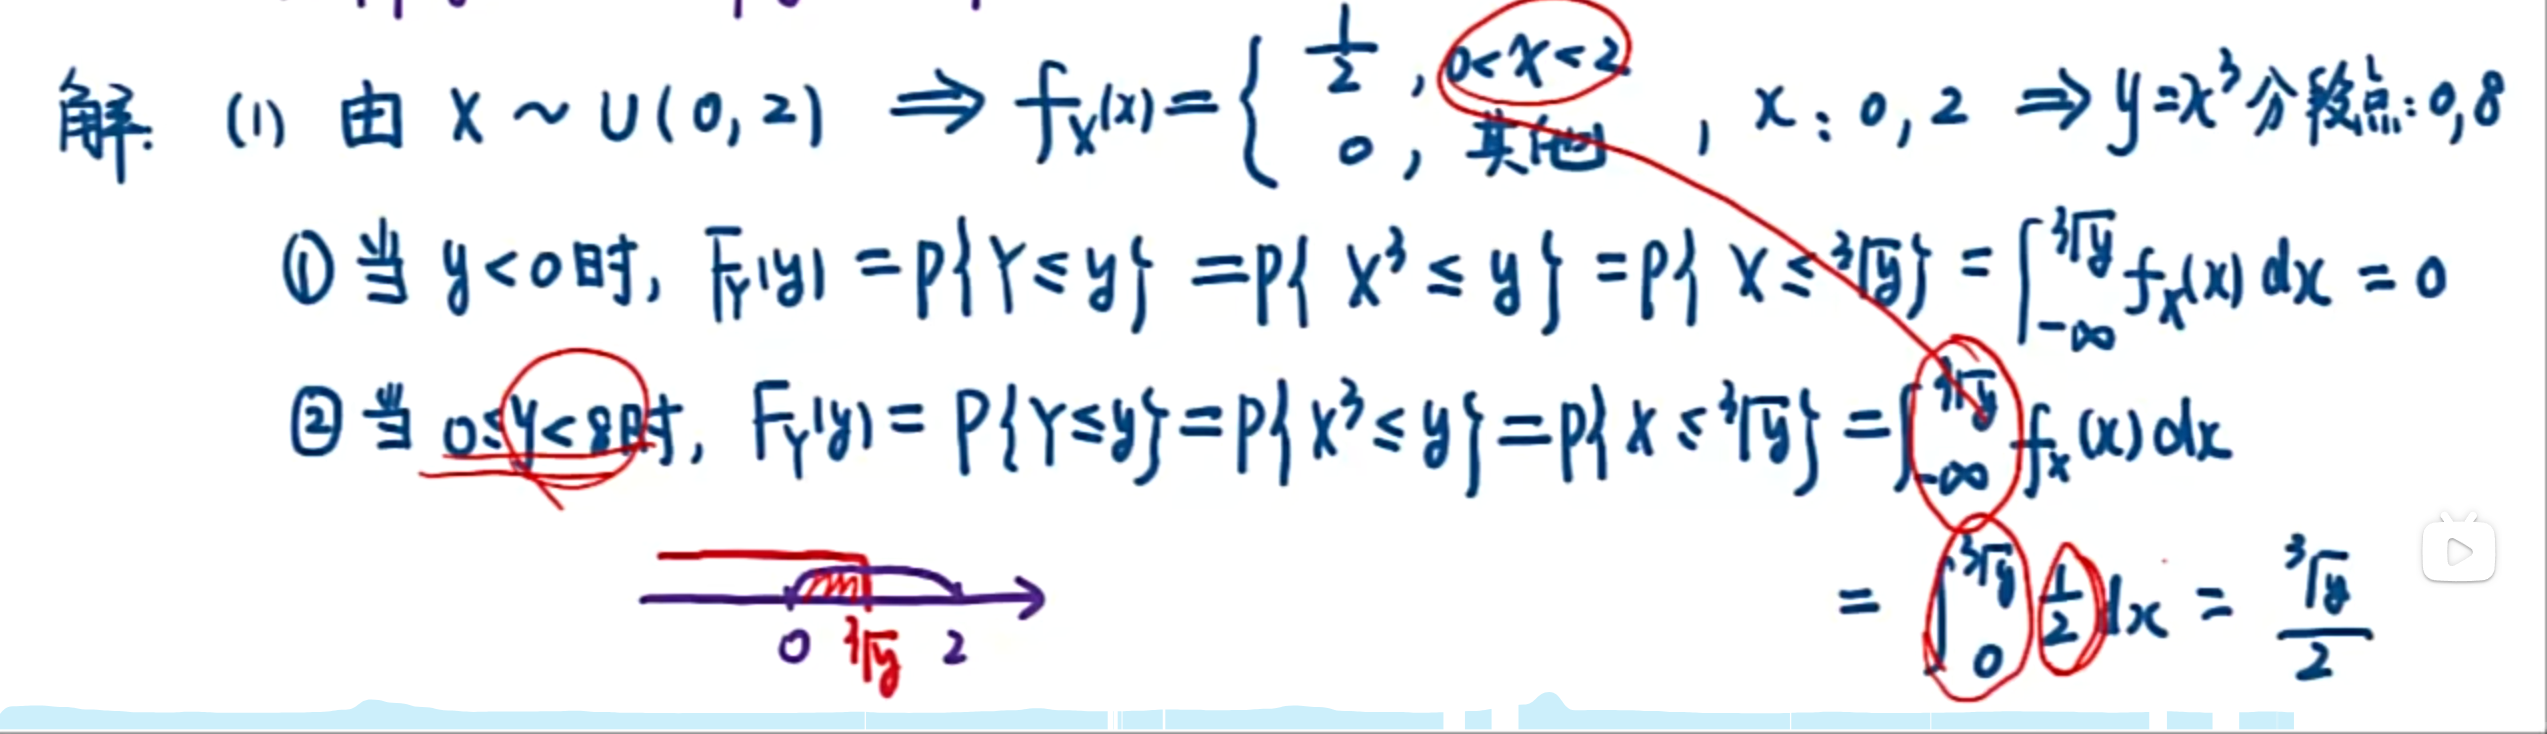 解: (1) 由 X ~ U(0,2) ⇒ f_X(x) = { 1/2, 0<x<2; 0, 其他 , x: 0,2 ⇒ y=x³分段点:0,8
① 当 y<0时, F_Y(y) = P{Y≤y} = P{X³≤y} = P{X≤∛y} = ∫_{-∞}^{∛y} f_X(x)dx = 0
② 当 0≤y<8时, F_Y(y) = P{Y≤y} = P{X³≤y} = P{X≤∛y} = ∫_{-∞}^{∛y} f_X(x)dx
= ∫_0^{∛y} 1/2 dx = ∛y/2
0 ∛y 2